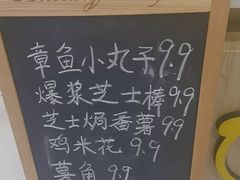 章鱼小丸子 9.9
爆浆芝士棒 9.9
芝士焗番薯 9.9
鸡米花 9.9
薯角 9.9